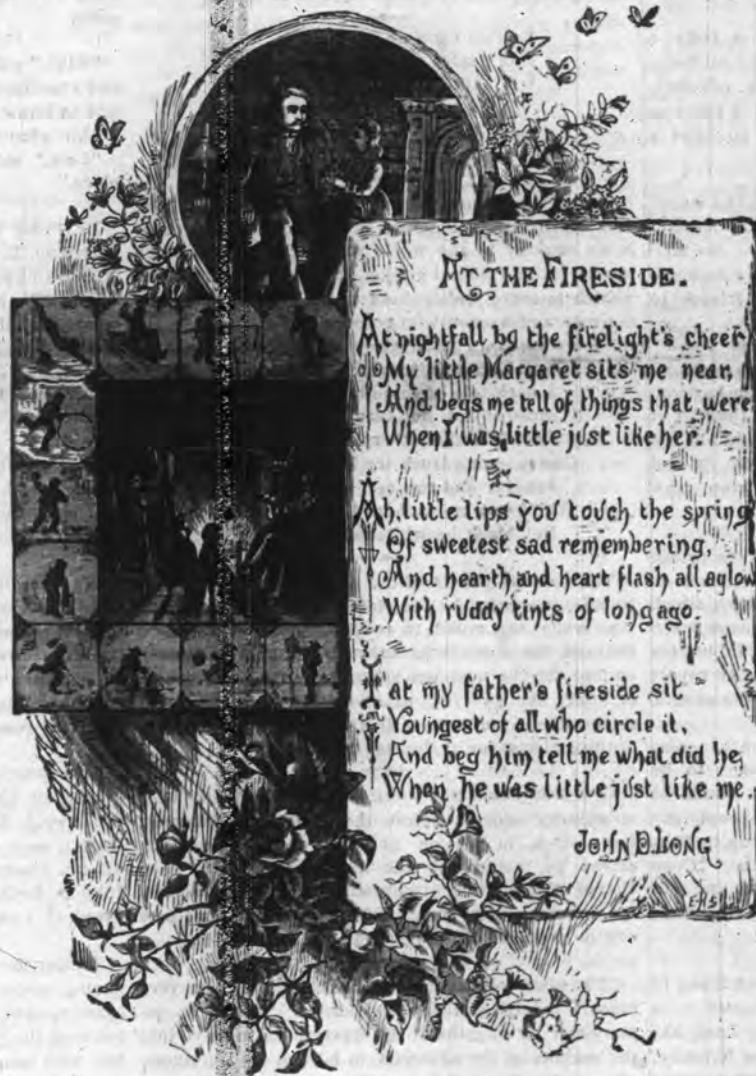 AT THE FIRESIDE.
At nightfall by the firelight's cheer
My little Margaret sits me near,
And begs me tell of things that were
When I was little just like her.
Ah, little lips you touch the spring
Of sweetest sad remembering,
And hearth and heart flash all aglow
With ruddy tints of long ago.
I at my father's fireside sit
Youngest of all who circle it,
And beg him tell me what did he,
When he was little just like me.
JOHN D. LONG